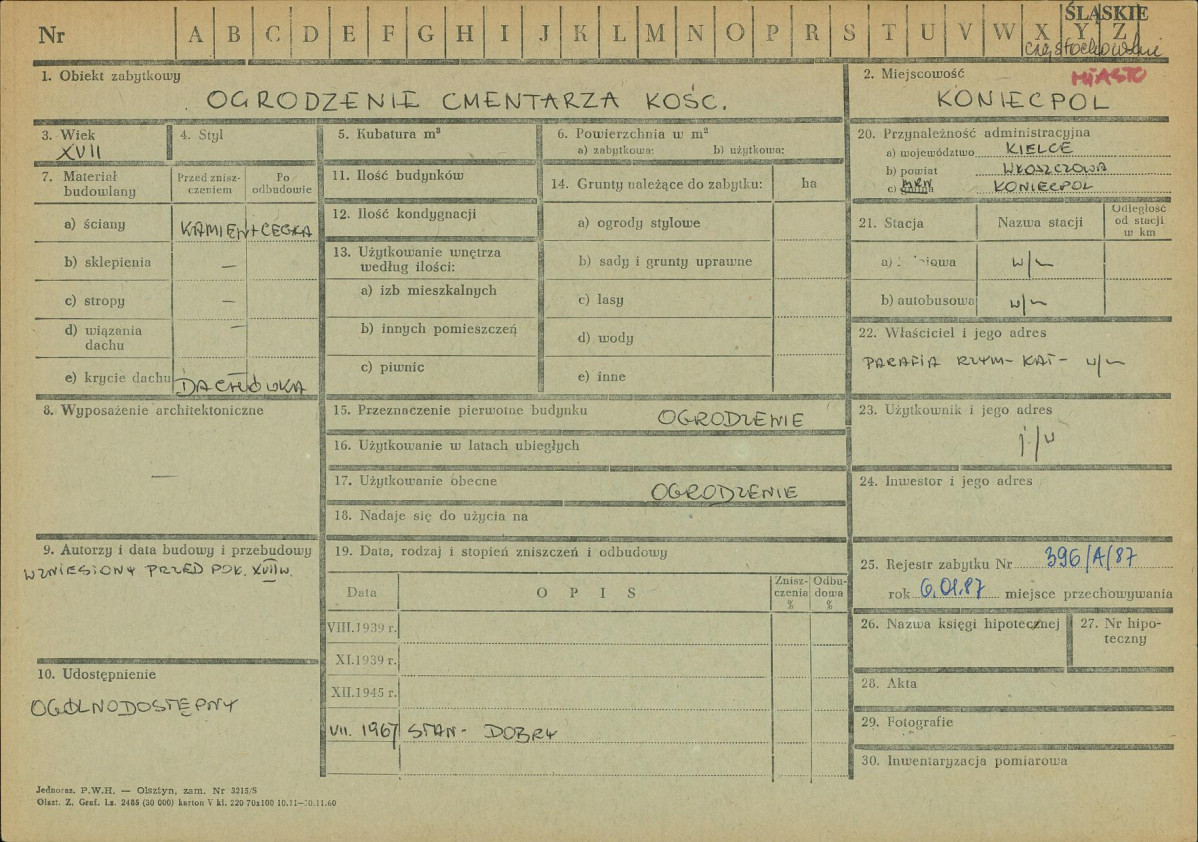 ŚLĄSKIE
Nr A B C D E F G H I J K L M N O P R S T U V W X Y Z
częstochowskie
1. Obiekt zabytkowy
OGRODZENIE CMENTARZA KOŚC.
2. Miejscowość
MIASTO
KONIECPOL
3. Wiek
XVII
4. Styl
5. Kubatura m³
6. Powierzchnia w m²
a) zabytkowa: b) użytkowa:
20. Przynależność administracyjna
a) województwo KIELCE
b) powiat WŁOSZCZOWA
c) MRN KONIECPOL
7. Materiał budowlany
Przed zniszczeniem
Po odbudowie
a) ściany KAMIEŃ + CEGŁA
b) sklepienia —
c) stropy —
d) wiązania dachu —
e) krycie dachu DACHÓWKA
11. Ilość budynków
12. Ilość kondygnacji
13. Użytkowanie wnętrza
według ilości:
a) izb mieszkalnych
b) innych pomieszczeń
c) piwnic
14. Grunty należące do zabytku: ha
a) ogrody stylowe
b) sady i grunty uprawne
c) lasy
d) wody
e) inne
21. Stacja
Nazwa stacji
Odległość
od stacji
w km
b) autobusowa
22. Właściciel i jego adres
PARAFIA RZYM- KAT-
8. Wyposażenie architektoniczne
—
15. Przeznaczenie pierwotne budynku OGRODZENIE
16. Użytkowanie w latach ubiegłych
17. Użytkowanie obecne OGRODZENIE
18. Nadaje się do użycia na
23. Użytkownik i jego adres
j./w
24. Inwestor i jego adres
9. Autorzy i data budowy i przebudowy
WZNIESIONY PRZED POŁ. XVII W.
10. Udostępnienie
OGÓLNODOSTĘPNY
19. Data, rodzaj i stopień zniszczeń i odbudowy
Data
OPIS
Znisz-
czenia
%
Odbu-
dowa
%
VIII.1939 r.
XI.1939 r.
XII.1945 r.
VII. 1967 STAN - DOBRY
25. Rejestr zabytku Nr 396/A/87
rok 6.01.87 miejsce przechowywania
26. Nazwa księgi hipotecznej
27. Nr hipo-
teczny
28. Akta
29. Fotografie
30. Inwentaryzacja pomiarowa
Jednoraz. P.W.H. — Olsztyn, zam. Nr 3215/S
Olszt. Z. Graf. Lz. 2485 (30 000) karton V kl. 220 70x100 10.11—30.11.60